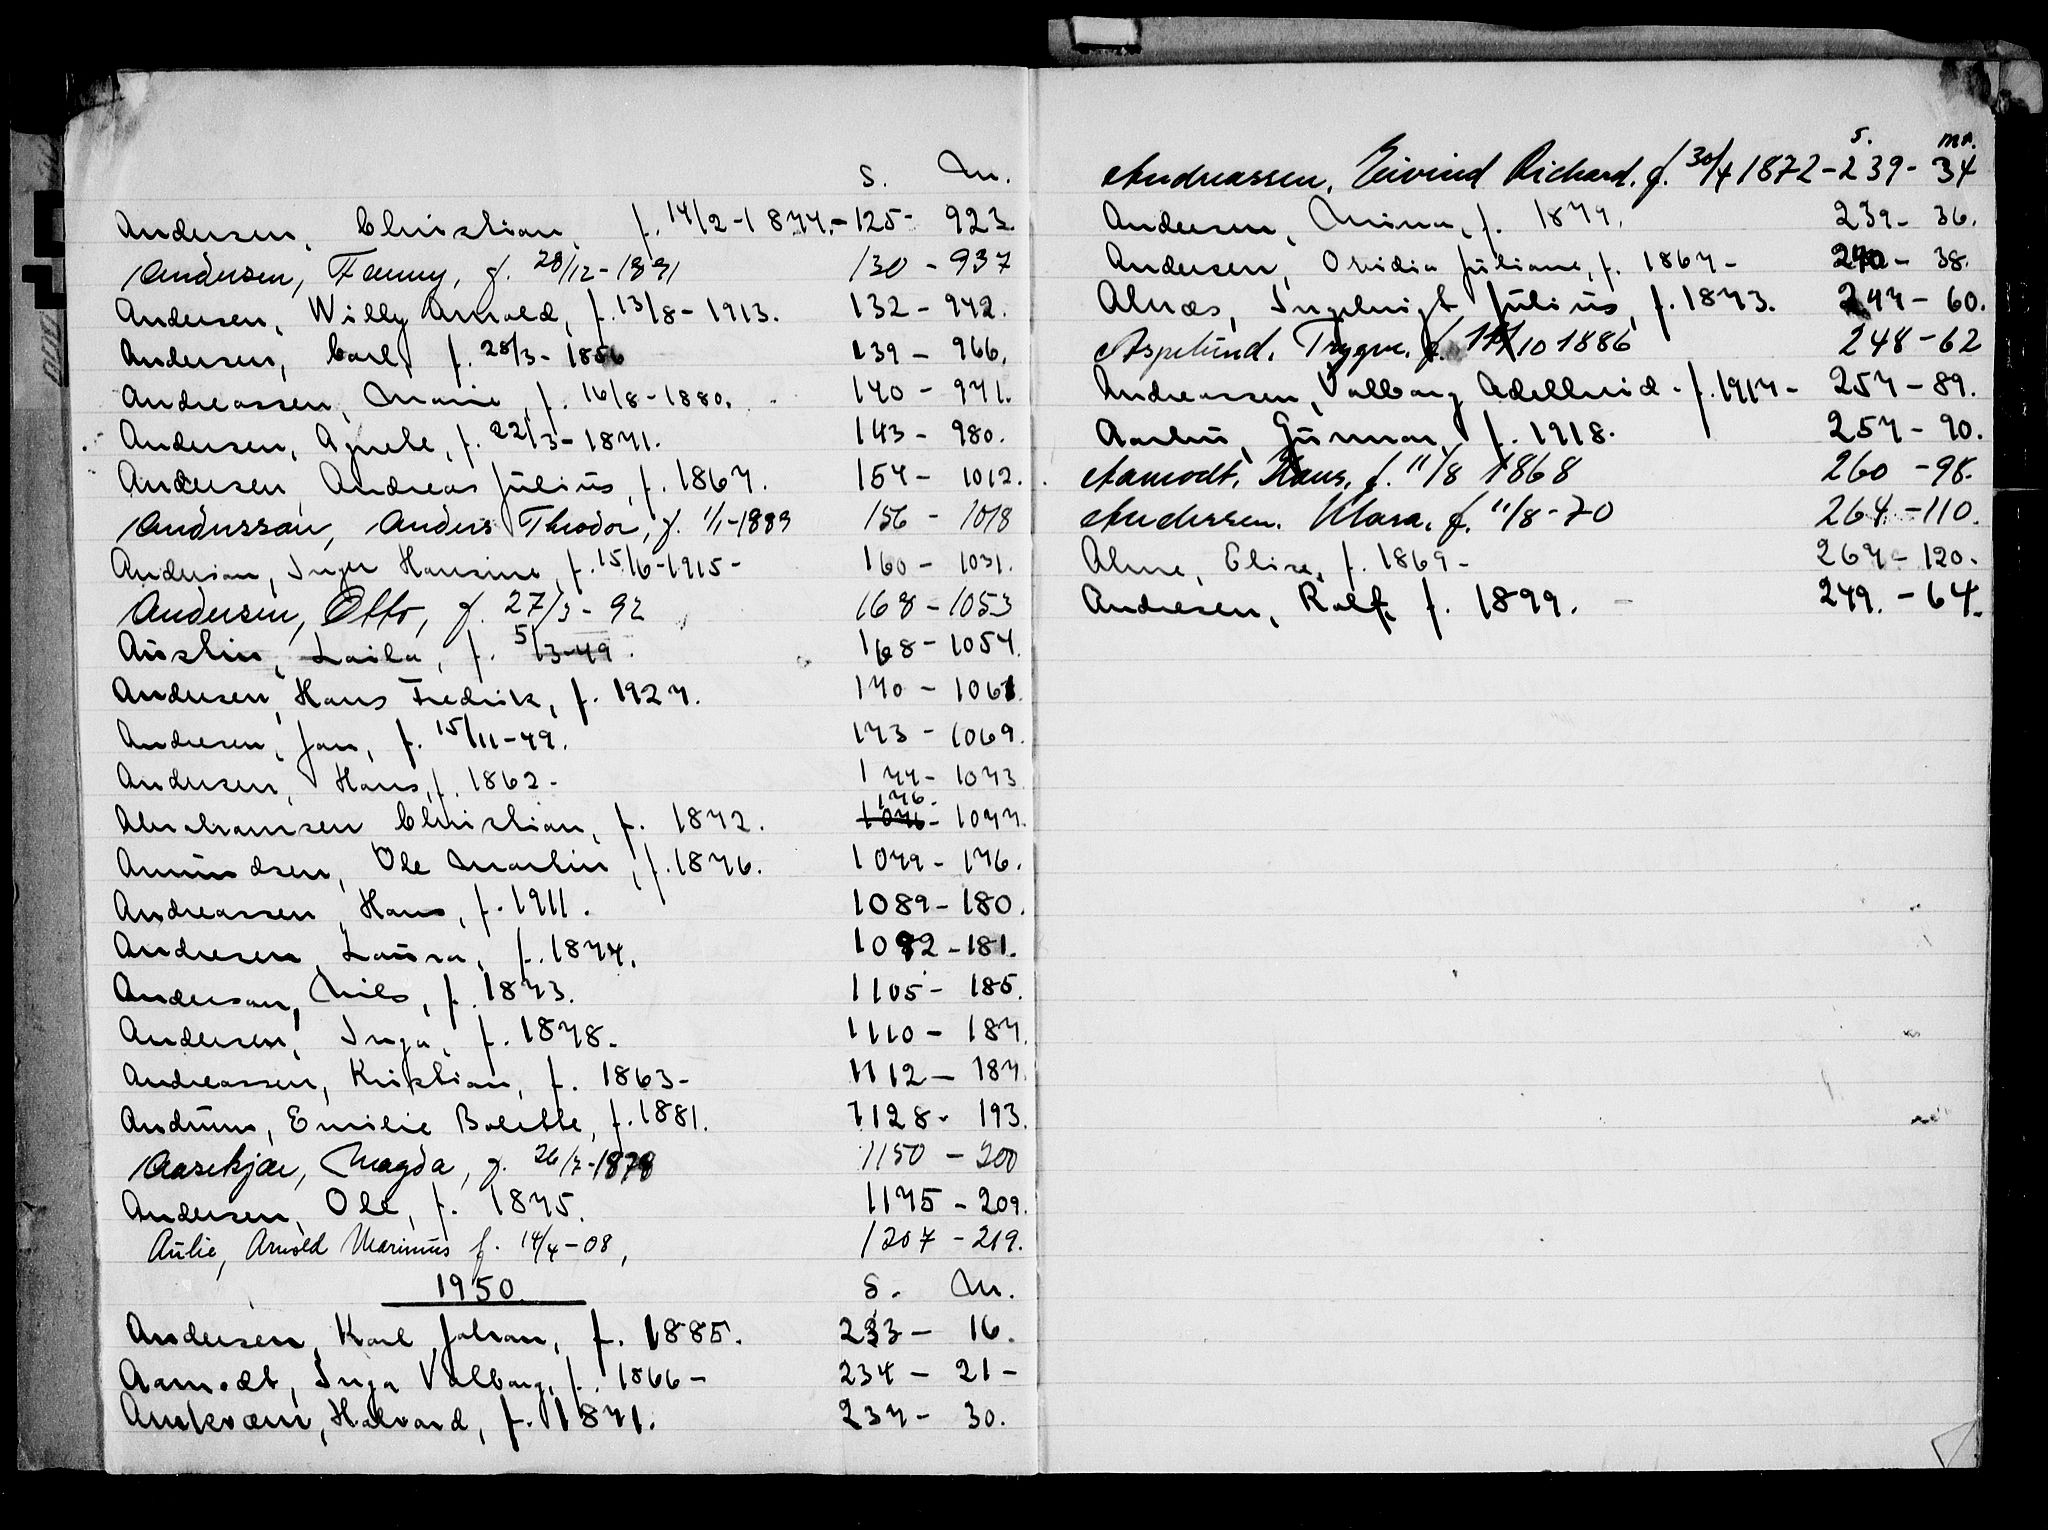 S. M.
Andersen, Christian, f. 14/2-1877.-125- 923.
Andersen, Fanny, f. 28/12-1891 130 - 937
Andersen, Willy Arnold, f. 13/8-1913. 132 - 942.
Andersen, Carl, f. 28/3-1856 139 - 966.
Andreassen, Marie, f. 16/8-1880. 140 - 971.
Andersen, Agnete, f. 22/3-1871. 143 - 980.
Andersen, Andreas Julius, f. 1867. 154 - 1012.
Andersson, Anders Theodor, f. 1/1-1889 156 - 1018
Andersen, Inger Hansine, f. 15/6-1915- 160 - 1031.
Andersen, Otto, f. 27/3-92 168 - 1053
Austin, Laila, f. 5/3-49. 168 - 1054.
Andersen, Hans Fredrik, f. 1927. 170 - 1061.
Andresen, Jan, f. 15/11-49. 173 - 1069.
Andersen, Hans, f. 1862- 174 - 1073
176.
Abrahamsen Christian, f. 1872. 1076 - 1077.
Amundsen, Ole Martin, f. 1876. 1079 - 176.
Andreassen, Hans, f. 1911. 1089 - 180.
Andresen, Laura, f. 1874. 1092 - 181.
Anderson, Nils, f. 1873. 1105 - 185.
Andersen, Inga, f. 1878. 1110 - 187.
Andreassen, Kristian, f. 1863- 1112 - 187.
Andrum, Emilie Bolette, f. 1881. 1128 - 193.
Aasekjær, Magda, f. 26/7-1878 1150 - 200
Andersen, Ole, f. 1875. 1175 - 209.
Aulie, Arnold Marinius f. 14/4-08, 1207 - 219.
1950. S. M.
Andersen, Karl Johan, f. 1885. 233 - 16.
Aamodt, Inga Valborg, f. 1866- 234 - 21 -
Amkværn, Halvard, f. 1871. 237 - 30.
S. mn.
Andreassen, Eivind Richard. f. 30/4 1872 - 239 - 34
Andersen, Minna, f. 1879. 239 - 36.
Andersen, Ovidia Juliane, f. 1867- 240 - 38.
Alnæs, Ingebrigt Julius, f. 1873. 247 - 60.
Aspelund, Trygve, f. 14/10 1886 248 - 62
Andreassen, Valborg Adelheid - f. 1917 - 257 - 89.
Aarhus, Gunnar, f. 1918. 257 - 90.
Aamodt, Hans, f. 11/8 1868 260 - 98.
Anderssen, Klara, f. 11/8-70 264 - 110.
Alme, Elise, f. 1869- 267 - 120.
Andresen, Rolf, f. 1899. - 249. - 64.